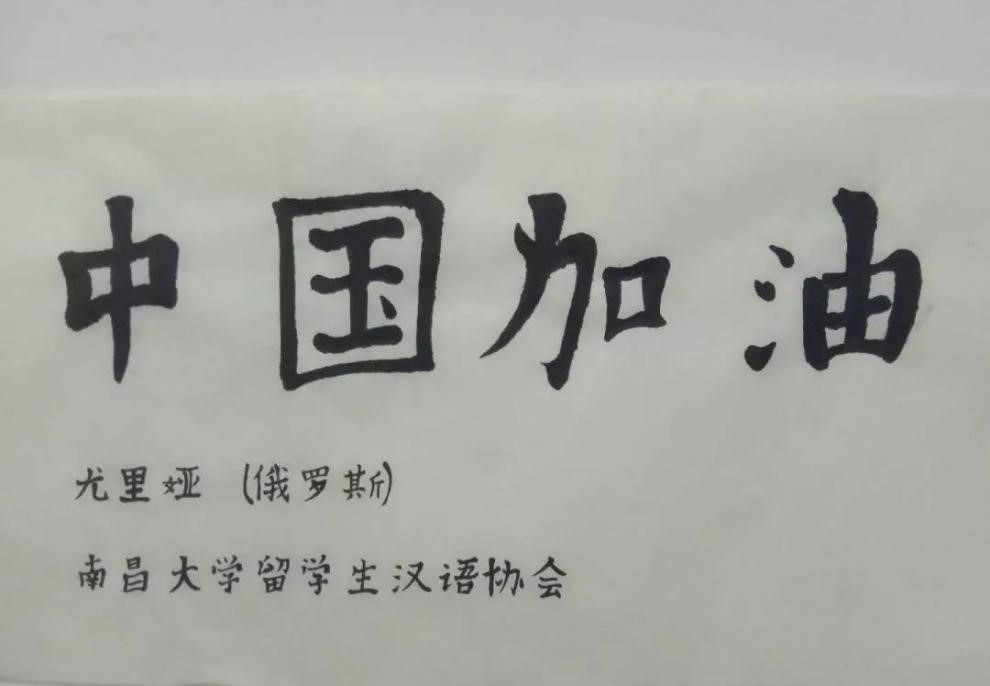 中国加油
尤里娅 (俄罗斯)
南昌大学留学生汉语协会